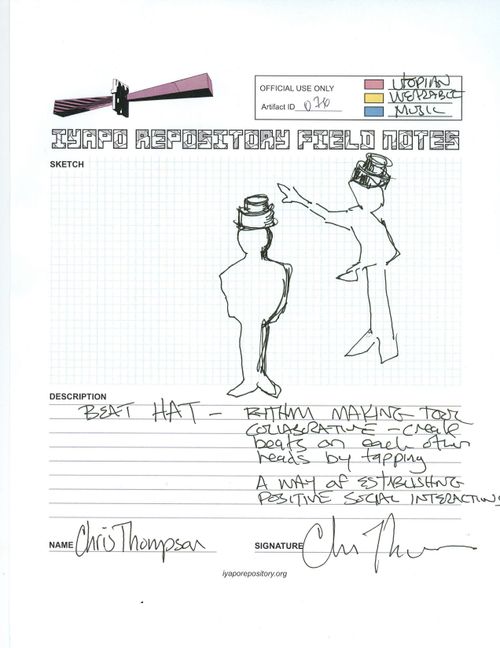 OFFICIAL USE ONLY
Artifact ID 070
UTOPIAN
WEARABLE
MUSIC
IYAPO REPOSITORY FIELD NOTES
SKETCH
DESCRIPTION
BEAT HAT – RHYTHM MAKING TOOL
COLLABORATIVE – create
beats on each other
heads by tapping
A WAY OF ESTABLISHING
POSITIVE SOCIAL INTERACTIONS
NAME Chris Thompson
SIGNATURE
iyaporepository.org